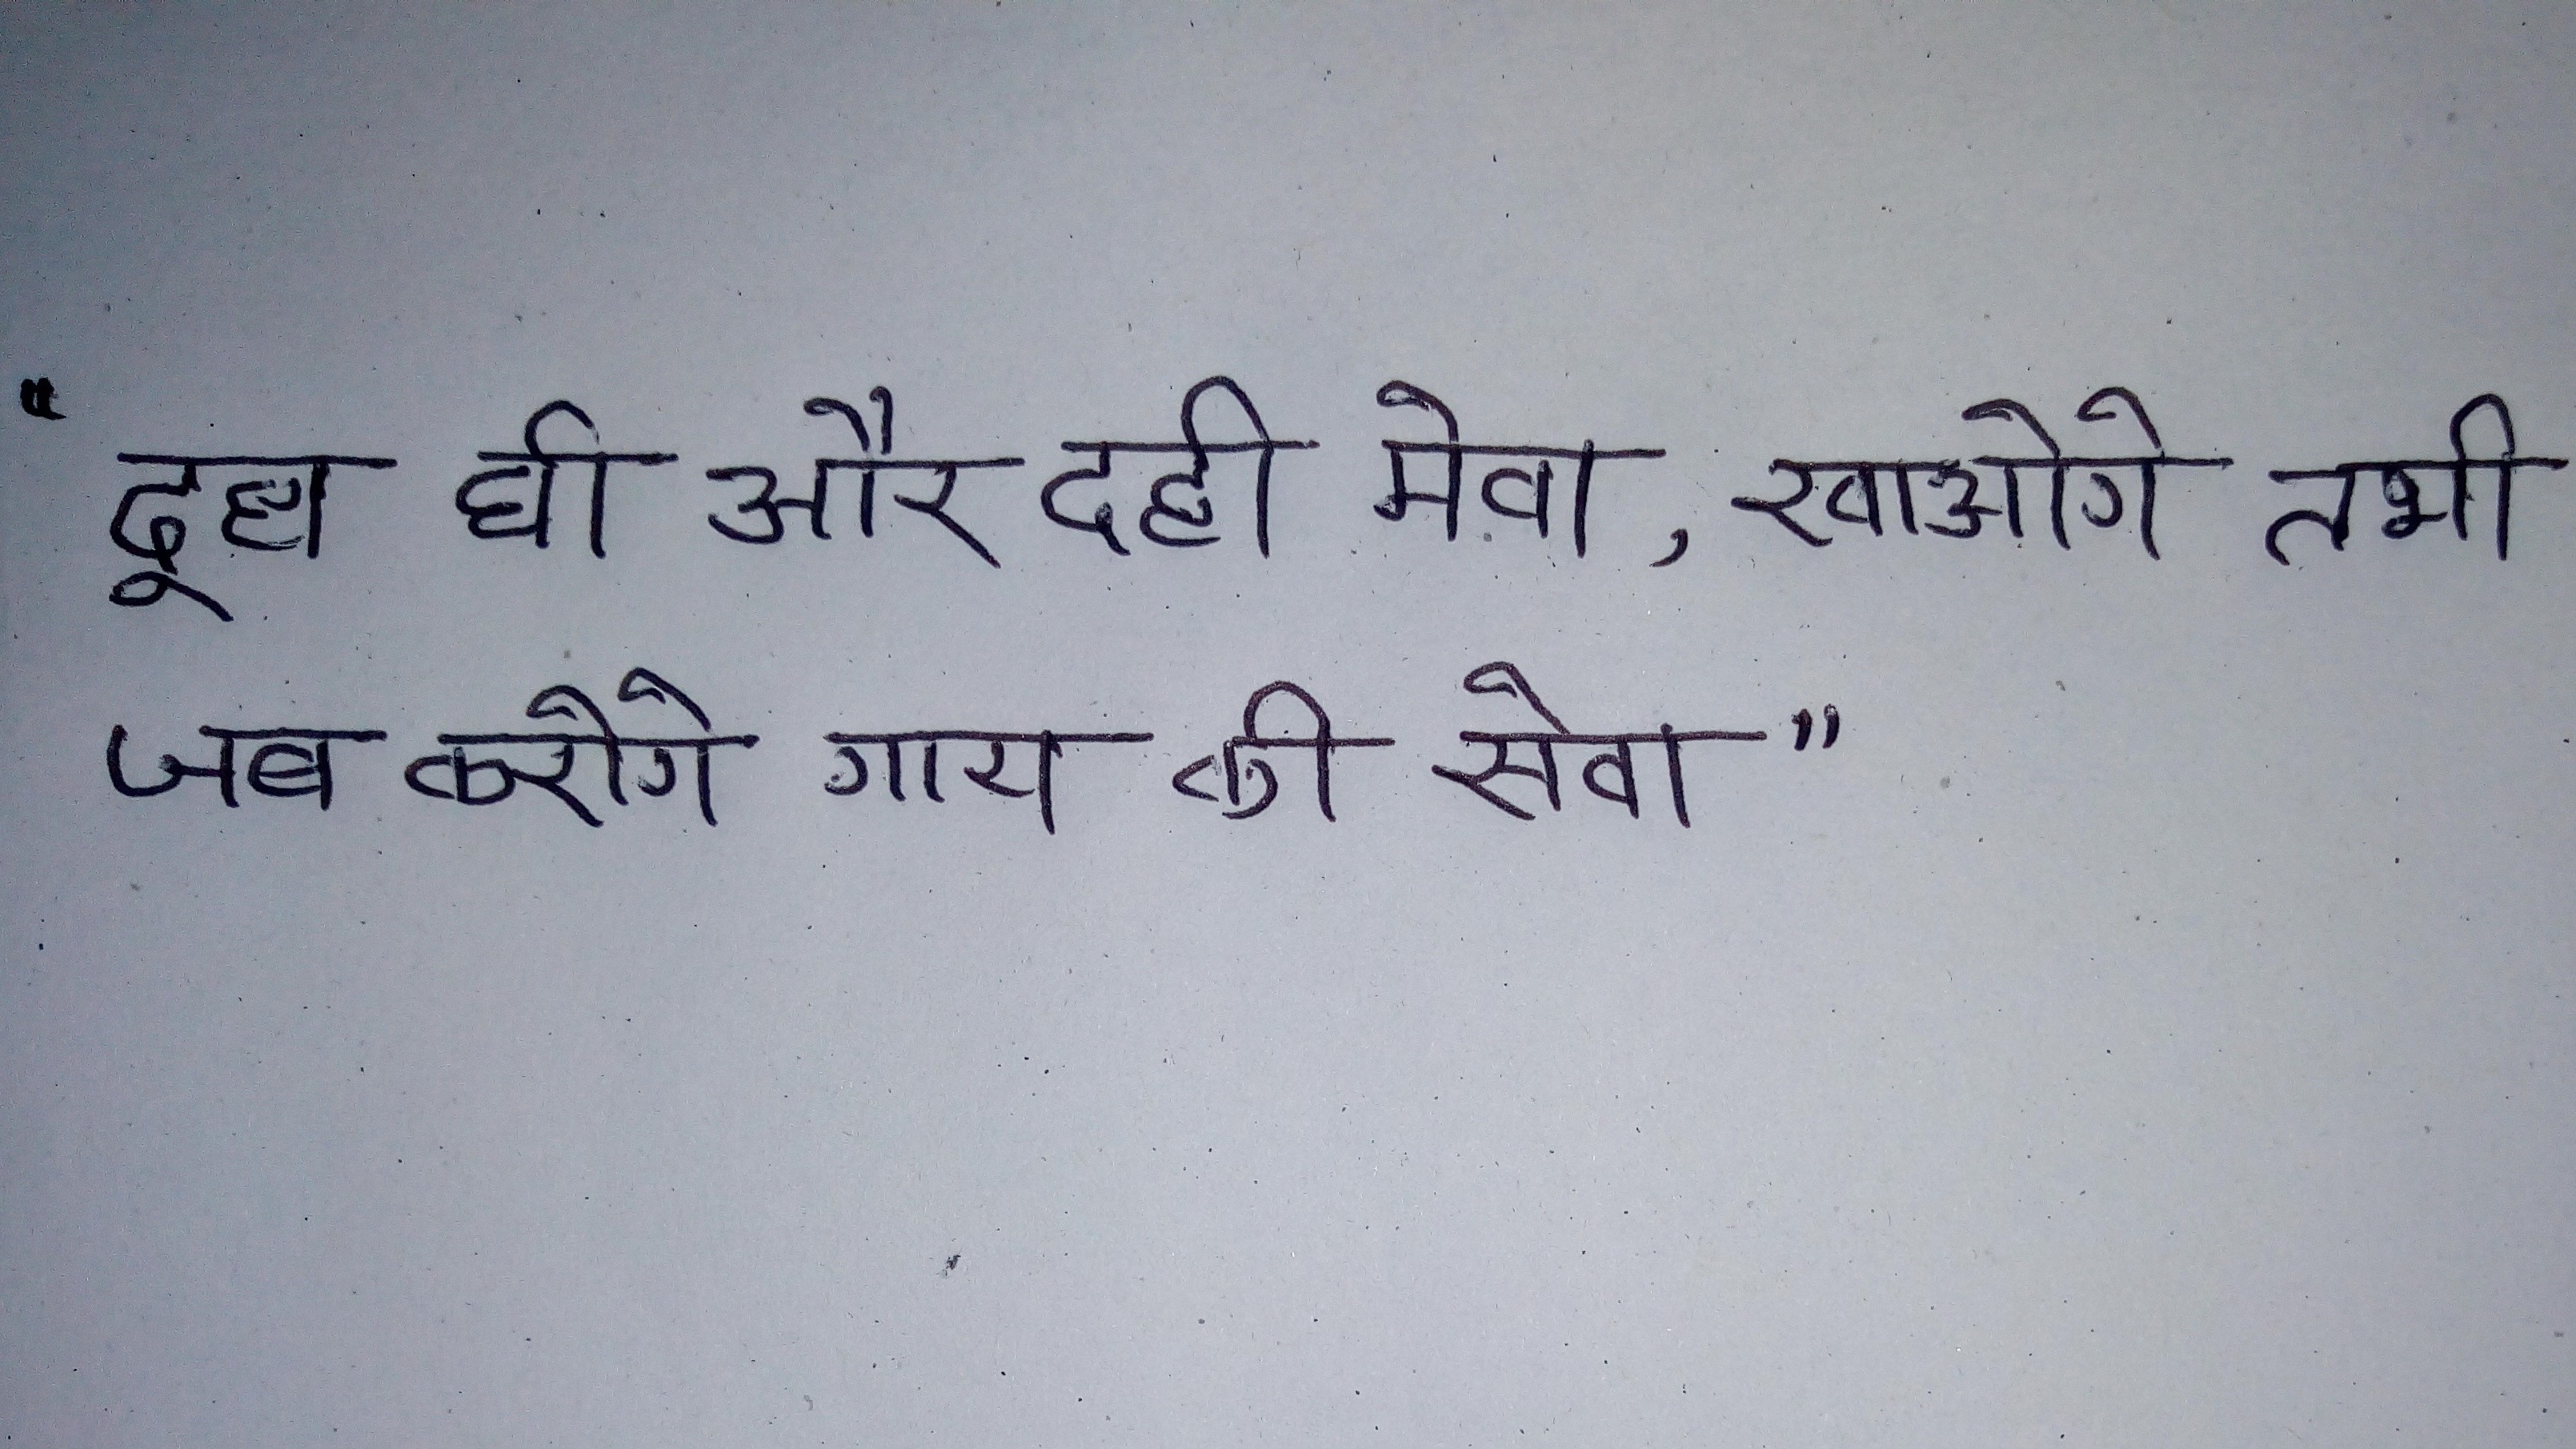 "दूध घी और दही मेवा, खाओगे तभी
जब करोगे गाय की सेवा"